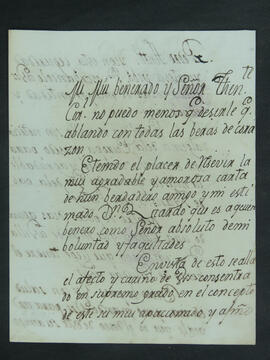 Mi Mui benerado y Señor Then.te
Cor. no puedo menos q. desirle q.
ablando con todas las beras de cora
zon.
E tenido el placer de recivir la
mui agradable y amorosa carta
de hun berdadero amigo y mi esti
mado, Dn. Ricardo que es aquien
benero como Señor absoluto de mi
boluntad y facultades.
En vista de esto se alla
el afecto y cariño de
do en supremo grado, en el concepto
de este su mui apacionado, y afmo